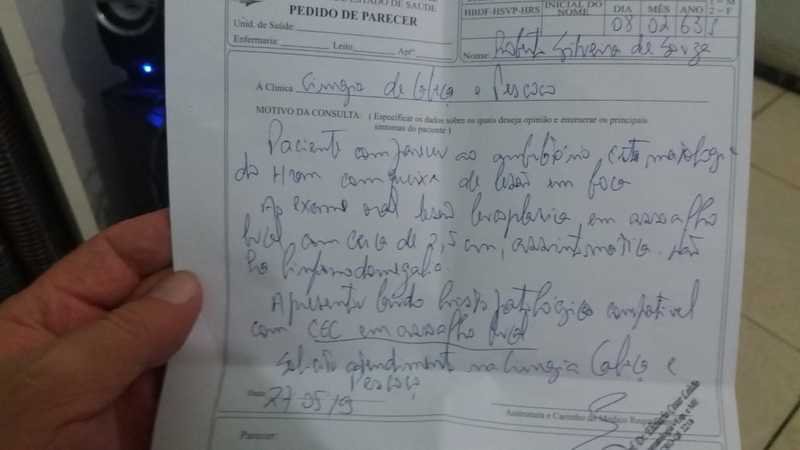 ESTADO DE SAÚDE
PEDIDO DE PARECER
HBDF-HSVP-HRS INICIAL DO NOME DIA MÊS ANO 2 – F
08 02 63
Unid. de Saúde:
Enfermaria: Leito: Apt°:
Nome: Silveira de Souza
À Clínica Cirurgia de Cabeça e Pescoço
MOTIVO DA CONSULTA: ( Especificar os dados sobre os quais deseja opinião e enumerar os principais
sintomas do paciente )
Paciente compareceu ao ambulatório
do Hran com queixa de lesão em boca
Ao exame oral lesão em assoalho
bucal com cerca de 2,5 cm, assintomática. Não
há linfonodomegalia.
Apresenta laudo histopatológico compatível
com CEC em assoalho bucal
Solicito atendimento na Cirurgia Cabeça e
Pescoço
Data: 27 05 19
Assinatura e Carimbo do Médico
Parecer: